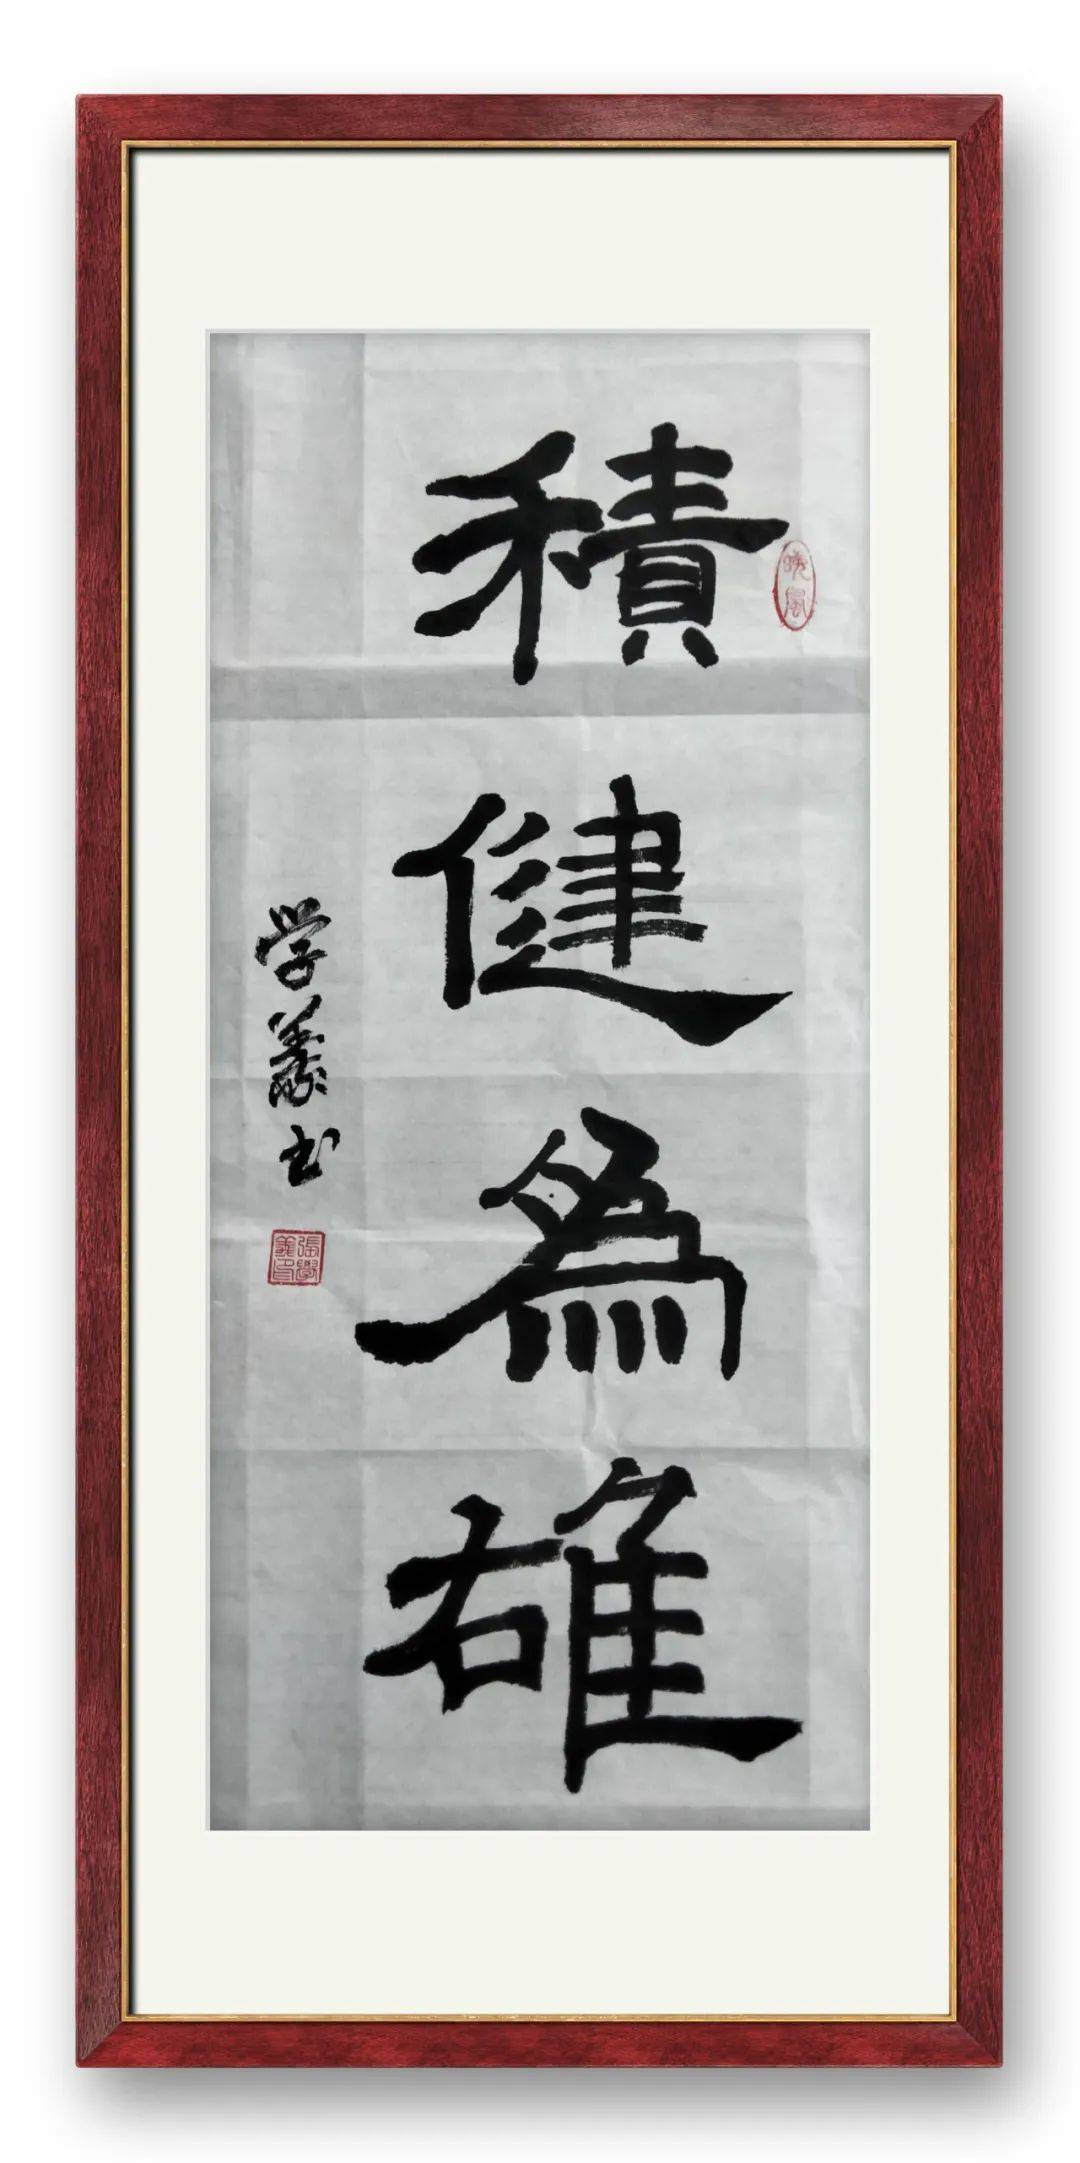 積健為雄
学義书
曉風
張學義印